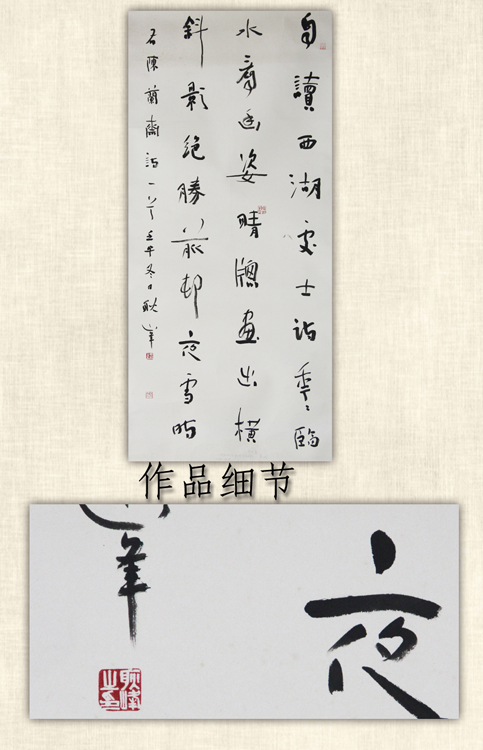 自讀西湖處士詩年〻臨
水看幽姿晴牕畫出橫
斜影絕勝前邨夜雪時
右陳簡齋詩一首壬午冬日耿峯
作品细节
夜
峯
耿峰之印